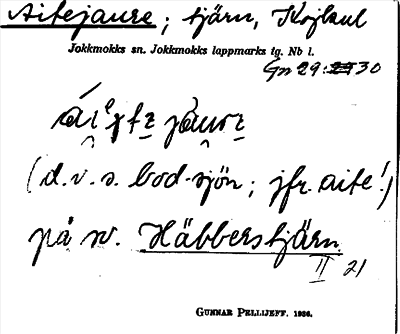 Aitejaure; tjärn, Kojkul
Jokkmokks sn. Jokkmokks lappmarks tg. Nb l.
Gn 29: 30
jáurɛ
(d.v.s. bod-sjön; jfr. aite!)
på sv. Häbberstjärn.
II 21
GUNNAR PELLIJEFF. 1936.